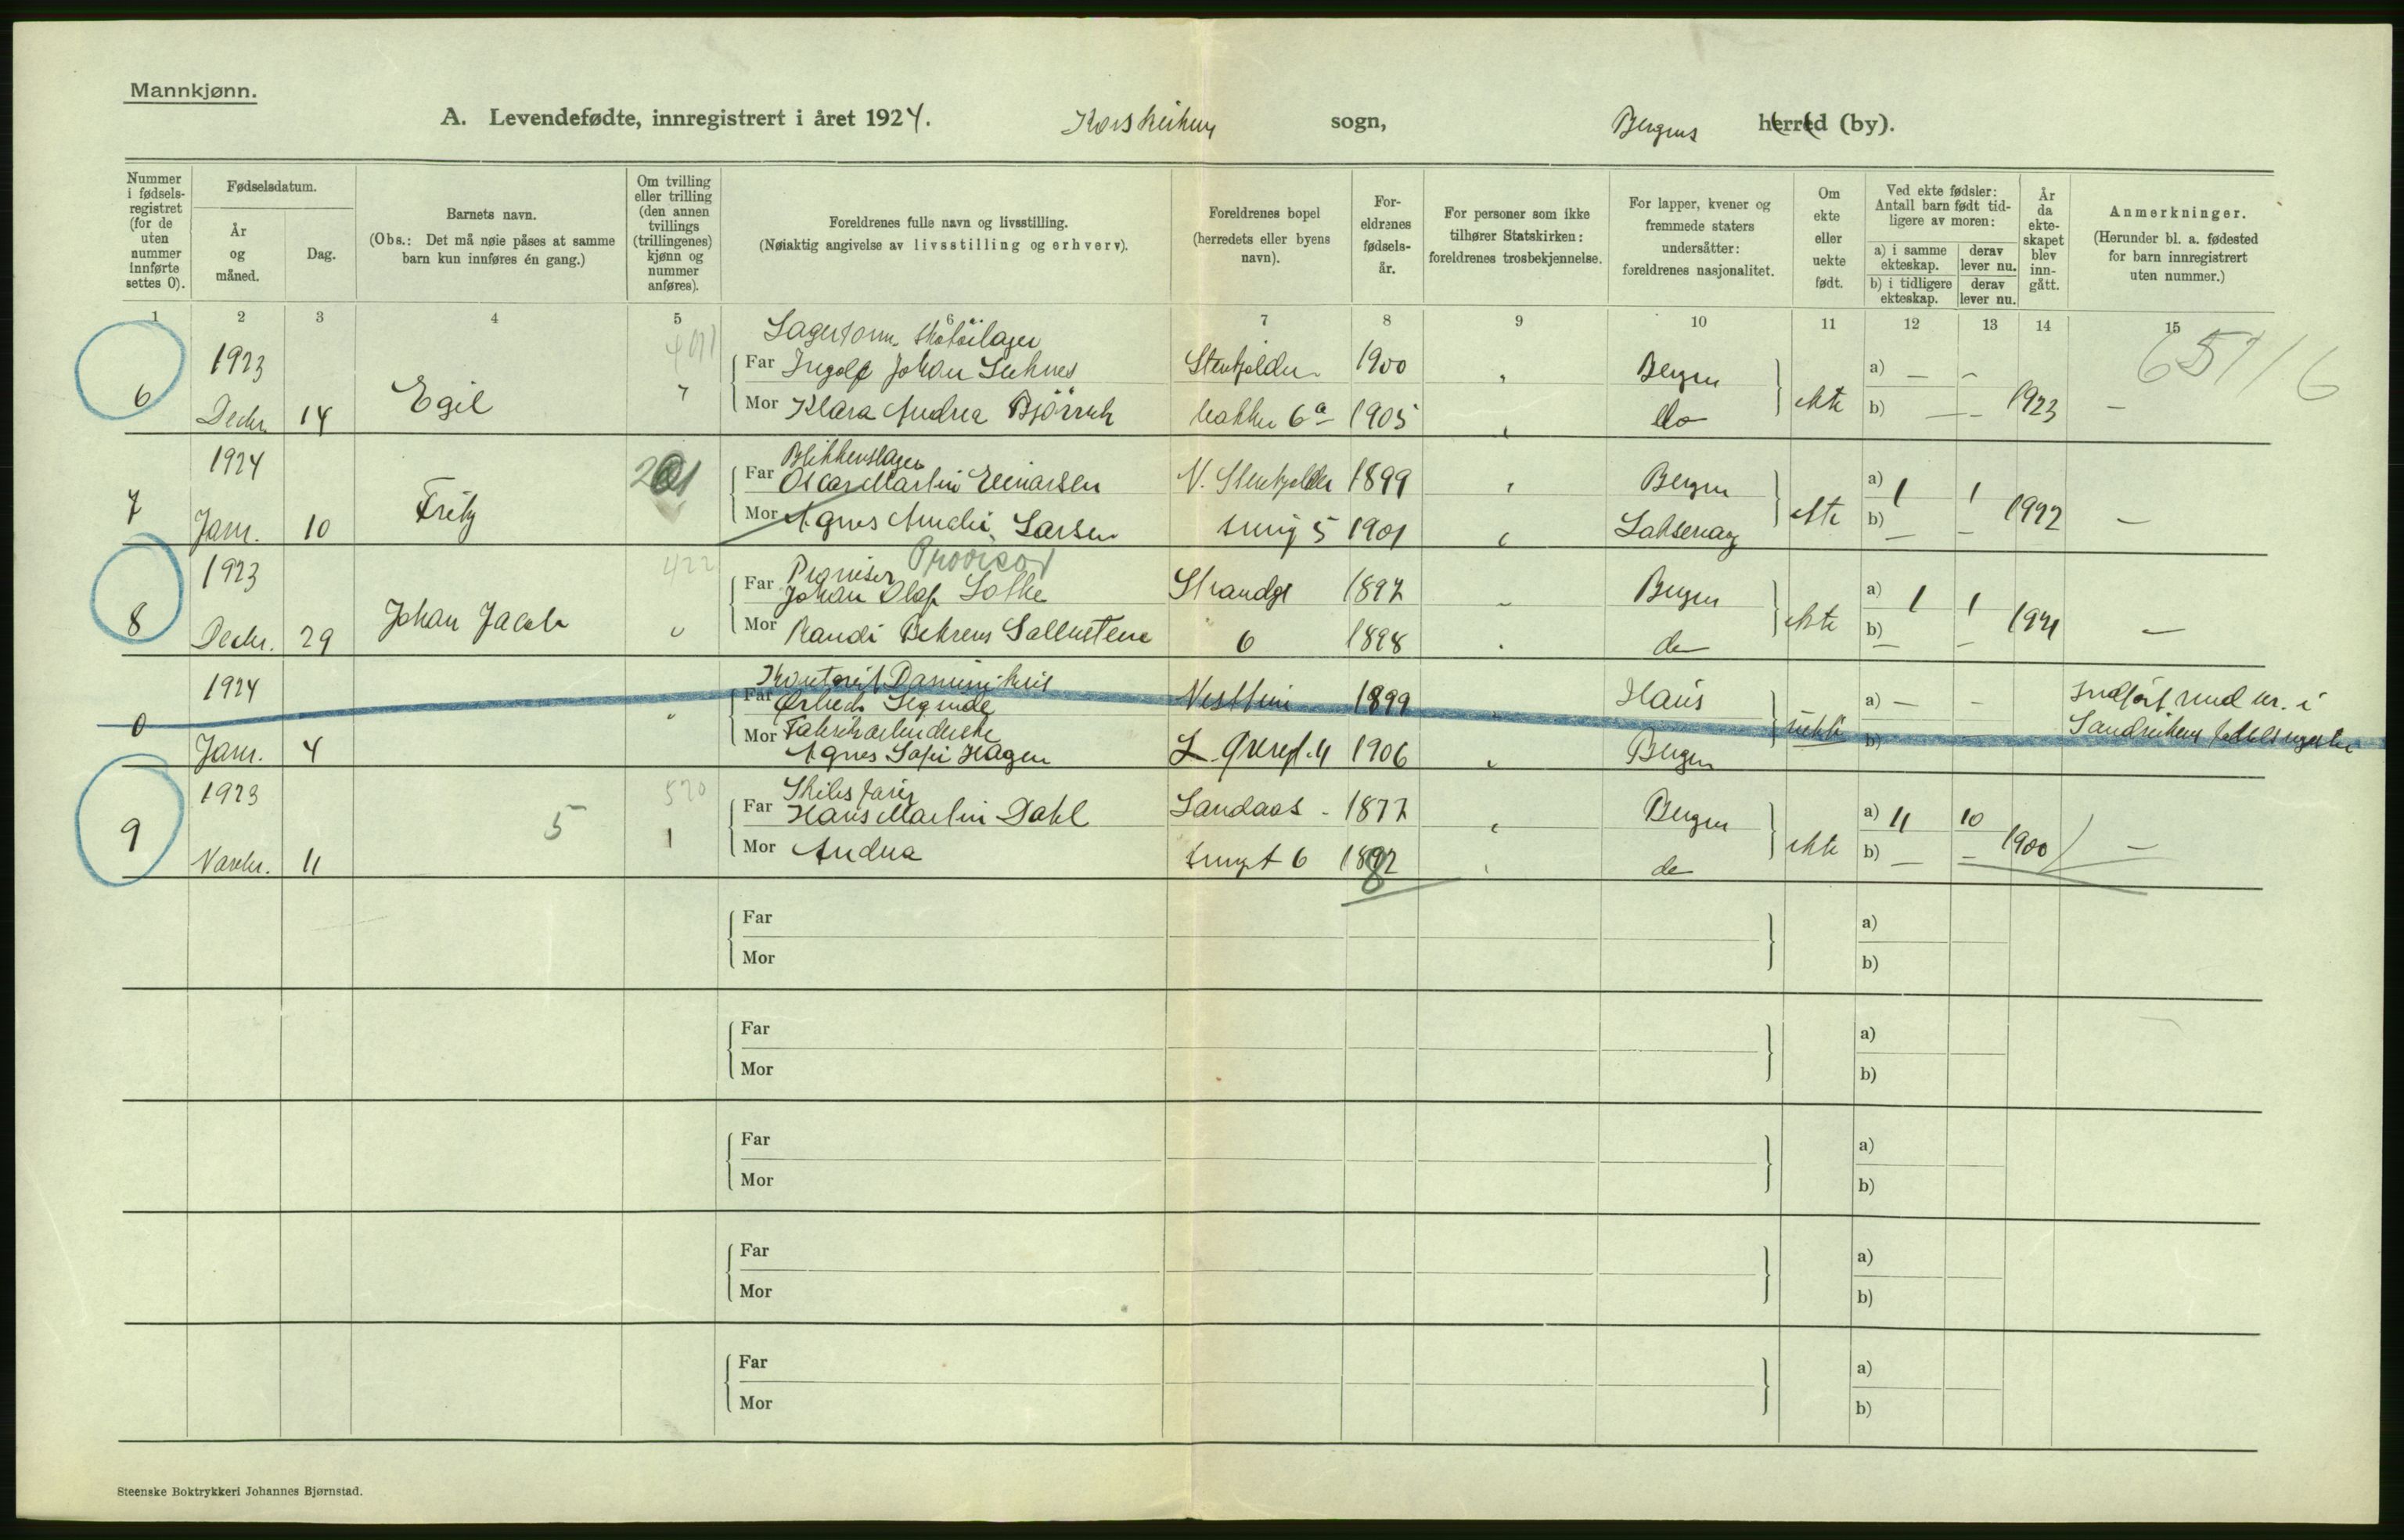 Mannkjønn.
A. Levendefødte, innregistrert i året 1924. Korskirken sogn, Bergens herred (by).
Nummer i fødsels-registret (for de uten nummer innførte settes 0).
Fødselsdatum.
År og måned.
Dag.
Barnets navn.
(Obs.: Det må nøie påses at samme barn kun innføres én gang.)
Om tvilling eller trilling (den annen tvillings (trillingenes) kjønn og nummer anføres).
Foreldrenes fulle navn og livsstilling.
(Nøiaktig angivelse av livsstilling og erhverv).
Foreldrenes bopel (herredets eller byens navn).
For-eldrenes fødsels-år.
For personer som ikke tilhører Statskirken: foreldrenes trosbekjennelse.
For lapper, kvener og fremmede staters undersåtter: foreldrenes nasjonalitet.
Om ekte eller uekte født.
Ved ekte fødsler: Antall barn født tid-ligere av moren:
a) i samme ekteskap.
derav lever nu.
b) i tidligere ekteskap.
derav lever nu.
År da ekte-skapet blev inn-gått.
Anmerkninger.
(Herunder bl. a. fødested for barn innregistrert uten nummer.)
1 2 3 4 5 6 7 8 9 10 11 12 13 14 15
6 1923 Decbr. 14 Egil
Far Ingolf Johan 1900 Bergen
Mor Klara Andrea bakken 6a 1905 do
ekte a) — — b) — — 1923 —
651/6
7 1924 Janr. 10 Fritz 201
Blikkenslager
Far Oscar Martin Einarsen N. Stenkjelder 1899 Bergen
Mor Agnes Amalie Larsen smug 5 1901 Laksevaag
ekte a) 1 1 b) — — 1922 —
8 1923 Decbr. 29 Johan Jacob 422
Provisor
Far Johan Olaf Strandgt 1897 Bergen
Mor Randi Behrens 6 1898 do
ekte a) 1 1 b) — — 1921 —
0 1924 Janr. 4
Far 1899 Haus
Fabrikarbeiderske
Mor Agnes Sofie Hagen 1906 Bergen
uekte a) — — b) —
Indført med nr. i
Sandvikens fødselsregister
9 1923 Novbr. 11 5 520 1
Far Hans Martin Dahl Landaas - 1877 Bergen
Mor Andrea 6 1882 do
ekte a) 11 10 b) — — 1900 —
Far a)
Mor b)
Far a)
Mor b)
Far a)
Mor b)
Far a)
Mor b)
Far a)
Mor b)
Steenske Boktrykkeri Johannes Bjørnstad.